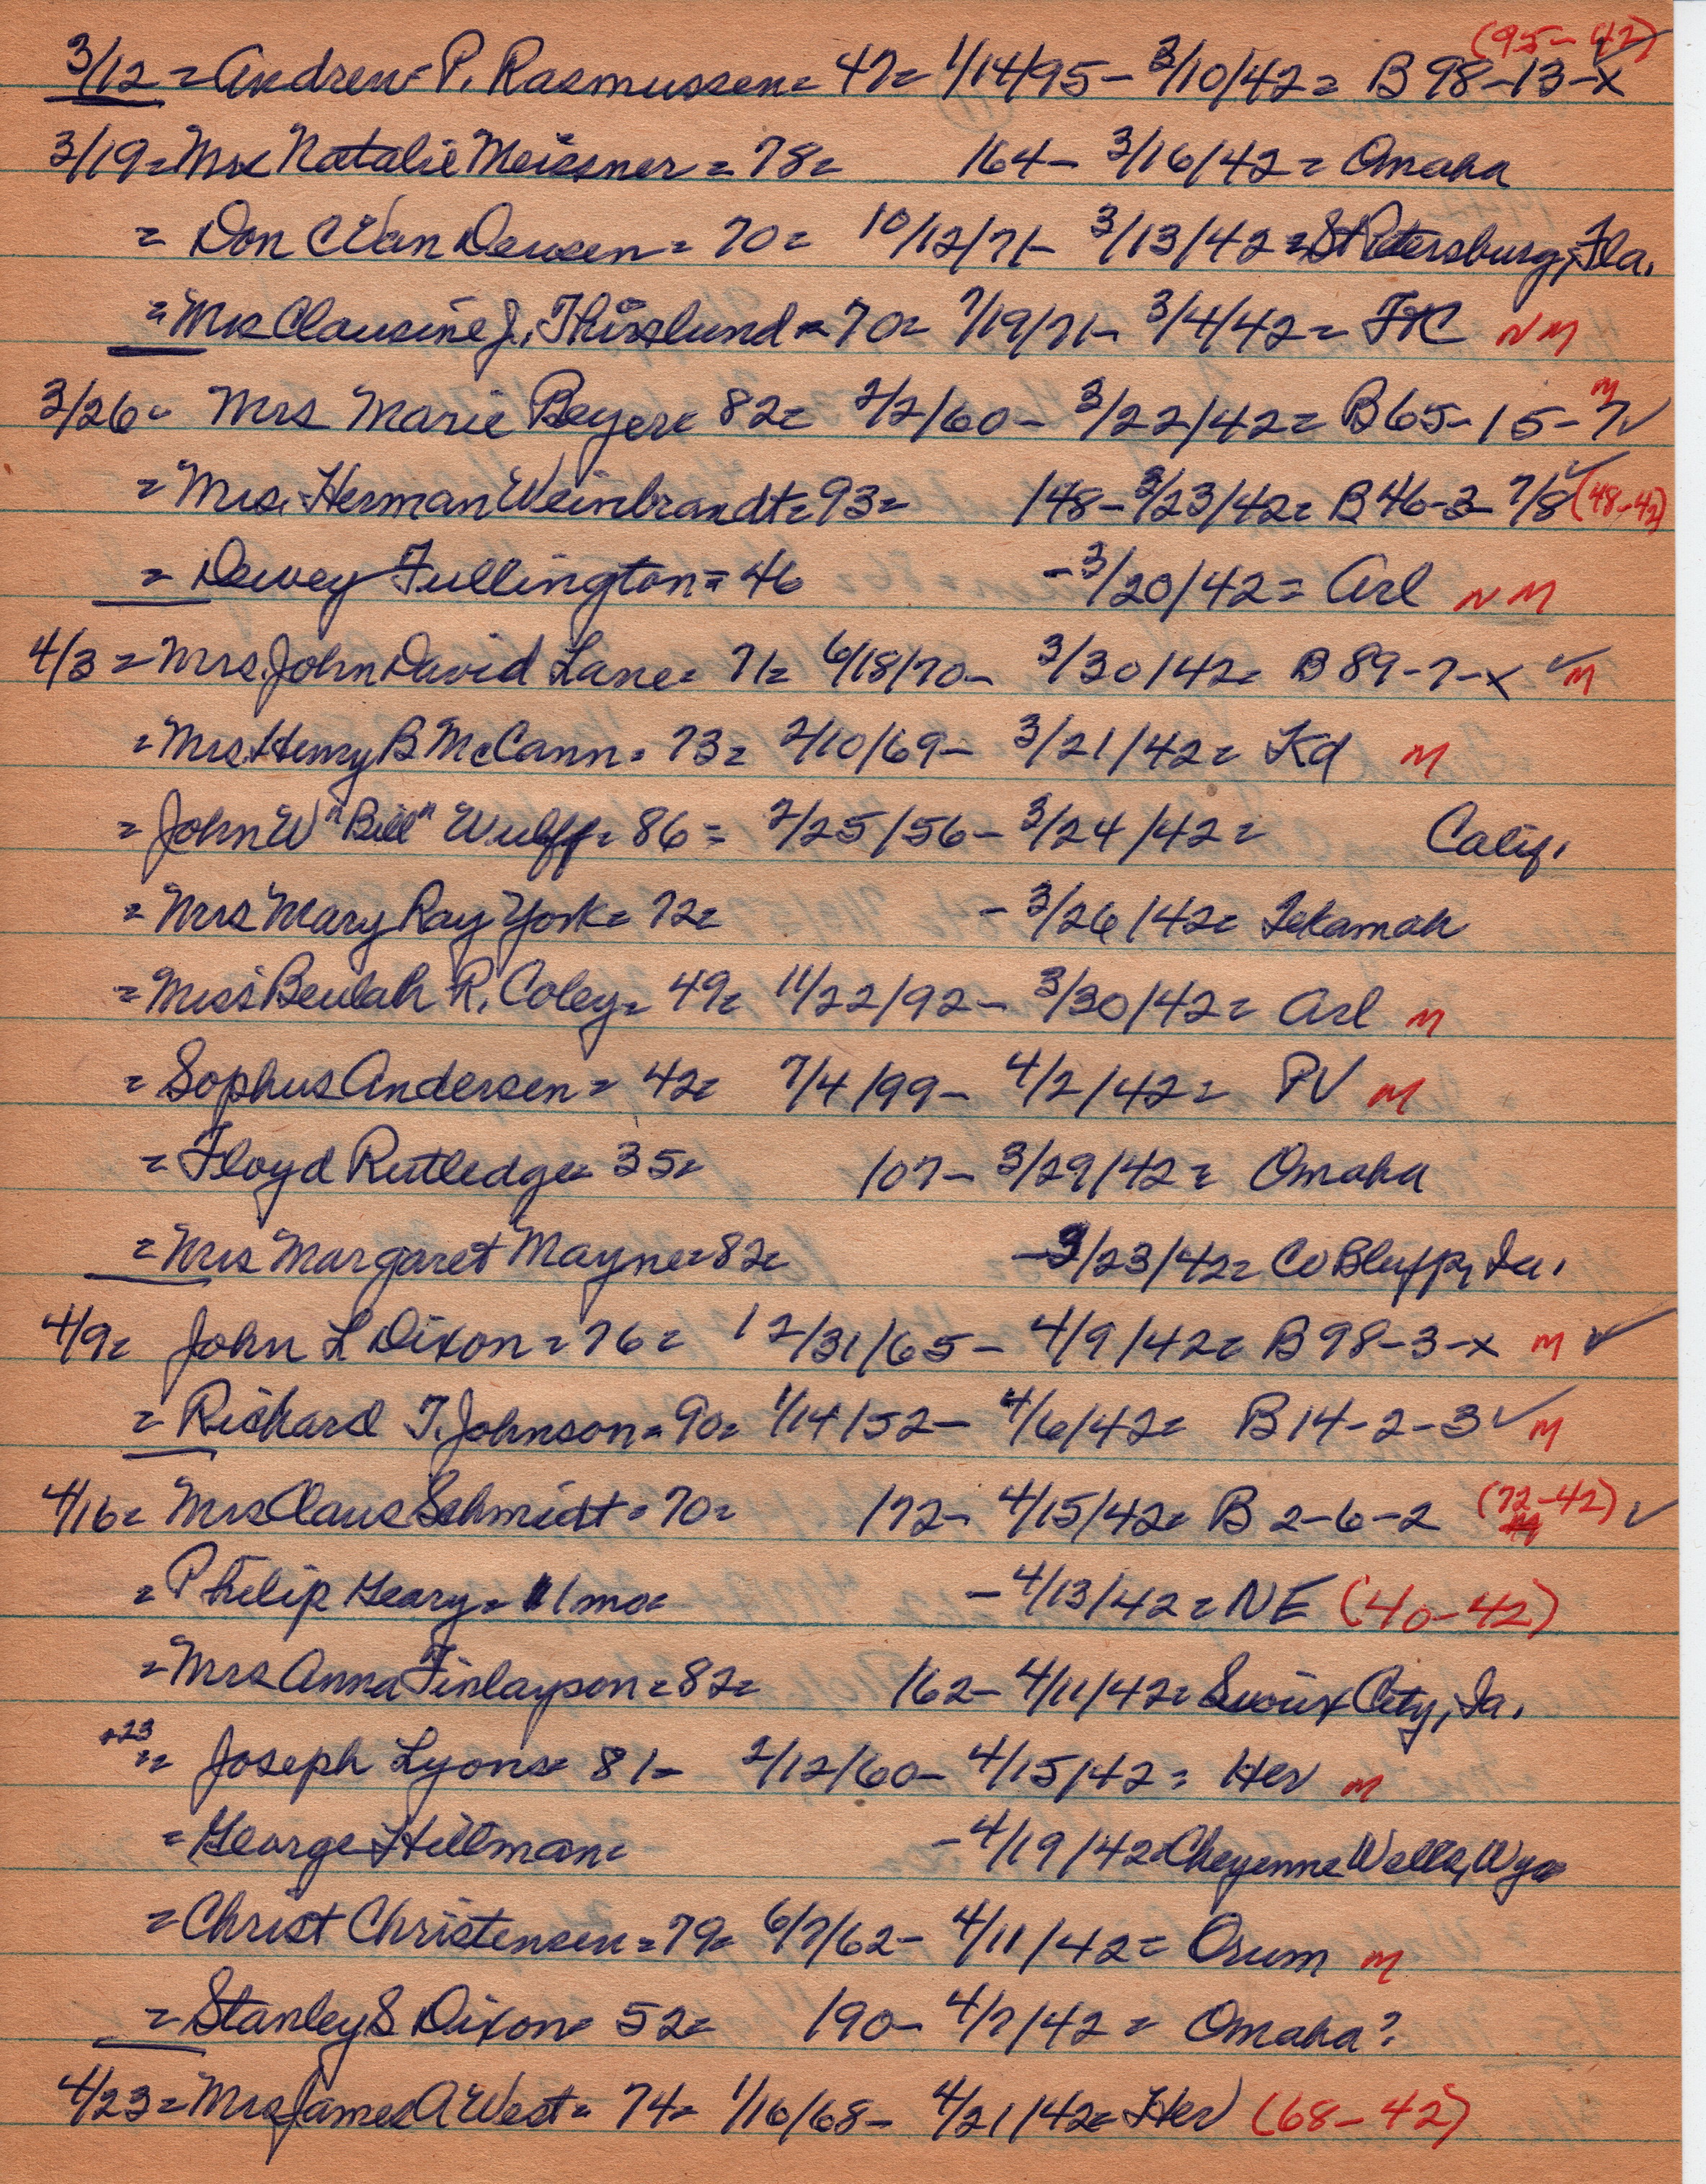 (95-42)
3/12 = Andrew P. Rasmussen = 47 = 1/14/95 - 3/10/42 = B 98-13-X
3/19 = Mrs Natalie Meissner = 78 = /64 - 3/16/42 = Omaha
= Don C Van Deusen = 70 = 10/12/71 - 3/13/42 = St Petersburg, Fla.
= Mrs Clausine J. Thirslund = 70 = 7/19/71 - 3/4/42 = NM
3/26 = Mrs Marie Beyer = 82 = 2/2/60 - 3/22/42 = B 65-15-7 ✓ M
= Mrs. Herman Weinbrandt = 93 = /48 - 3/23/42 = B 46-3 7/8 ✓ (48-42)
= Dewey Fullington = 46 - 3/20/42 = Arl NM
4/3 = Mrs. John David Lane = 71 = 6/18/70 - 3/30/42 = B 89-7-X ✓ M
= Mrs. Henry B McCann = 73 = 2/10/69 - 3/21/42 = Kd M
= John W "Bill" Wulff = 86 = 2/25/56 - 3/24/42 = Calif.
= Mrs Mary Ray York = 72 = - 3/26/42 = Tekamah
= Miss Beulah R. Coley = 49 = 11/22/92 - 3/30/42 = Arl M
= Sophus Andersen = 42 = 7/4/99 - 4/2/42 = PV M
= Floyd Rutledge = 35 = /07 - 3/29/42 = Omaha
= Mrs Margaret Mayne = 82 = - 3/23/42 = Co Bluffs, Ia.
4/9 = John L Dixon = 76 = 12/31/65 - 4/9/42 = B 98-3-X M ✓
= Richard T. Johnson = 90 = 1/14/52 - 4/6/42 = B 14-2-3 ✓ M
4/16 = Mrs Claus Schmidt = 70 = /72 - 4/15/42 = B 2-6-2 (72-42) ✓
= Philip Geary = 1 mo = - 4/13/42 = NE (40-42)
= Mrs Anna Finlayson = 82 = /62 - 4/11/42 = Sioux City, Ia.
+23 = Joseph Lyons = 81 - 2/12/60 - 4/15/42 = Her M
= George Hillman = - 4/19/42 = Cheyenne Wells, Wyo
= Christ Christensen = 79 = 6/7/62 - 4/11/42 = Orum M
= Stanley S Dixon = 52 = /90 - 4/7/42 = Omaha?
4/23 = Mrs James A West = 74 = 1/16/68 - 4/21/42 = Her (68-42)